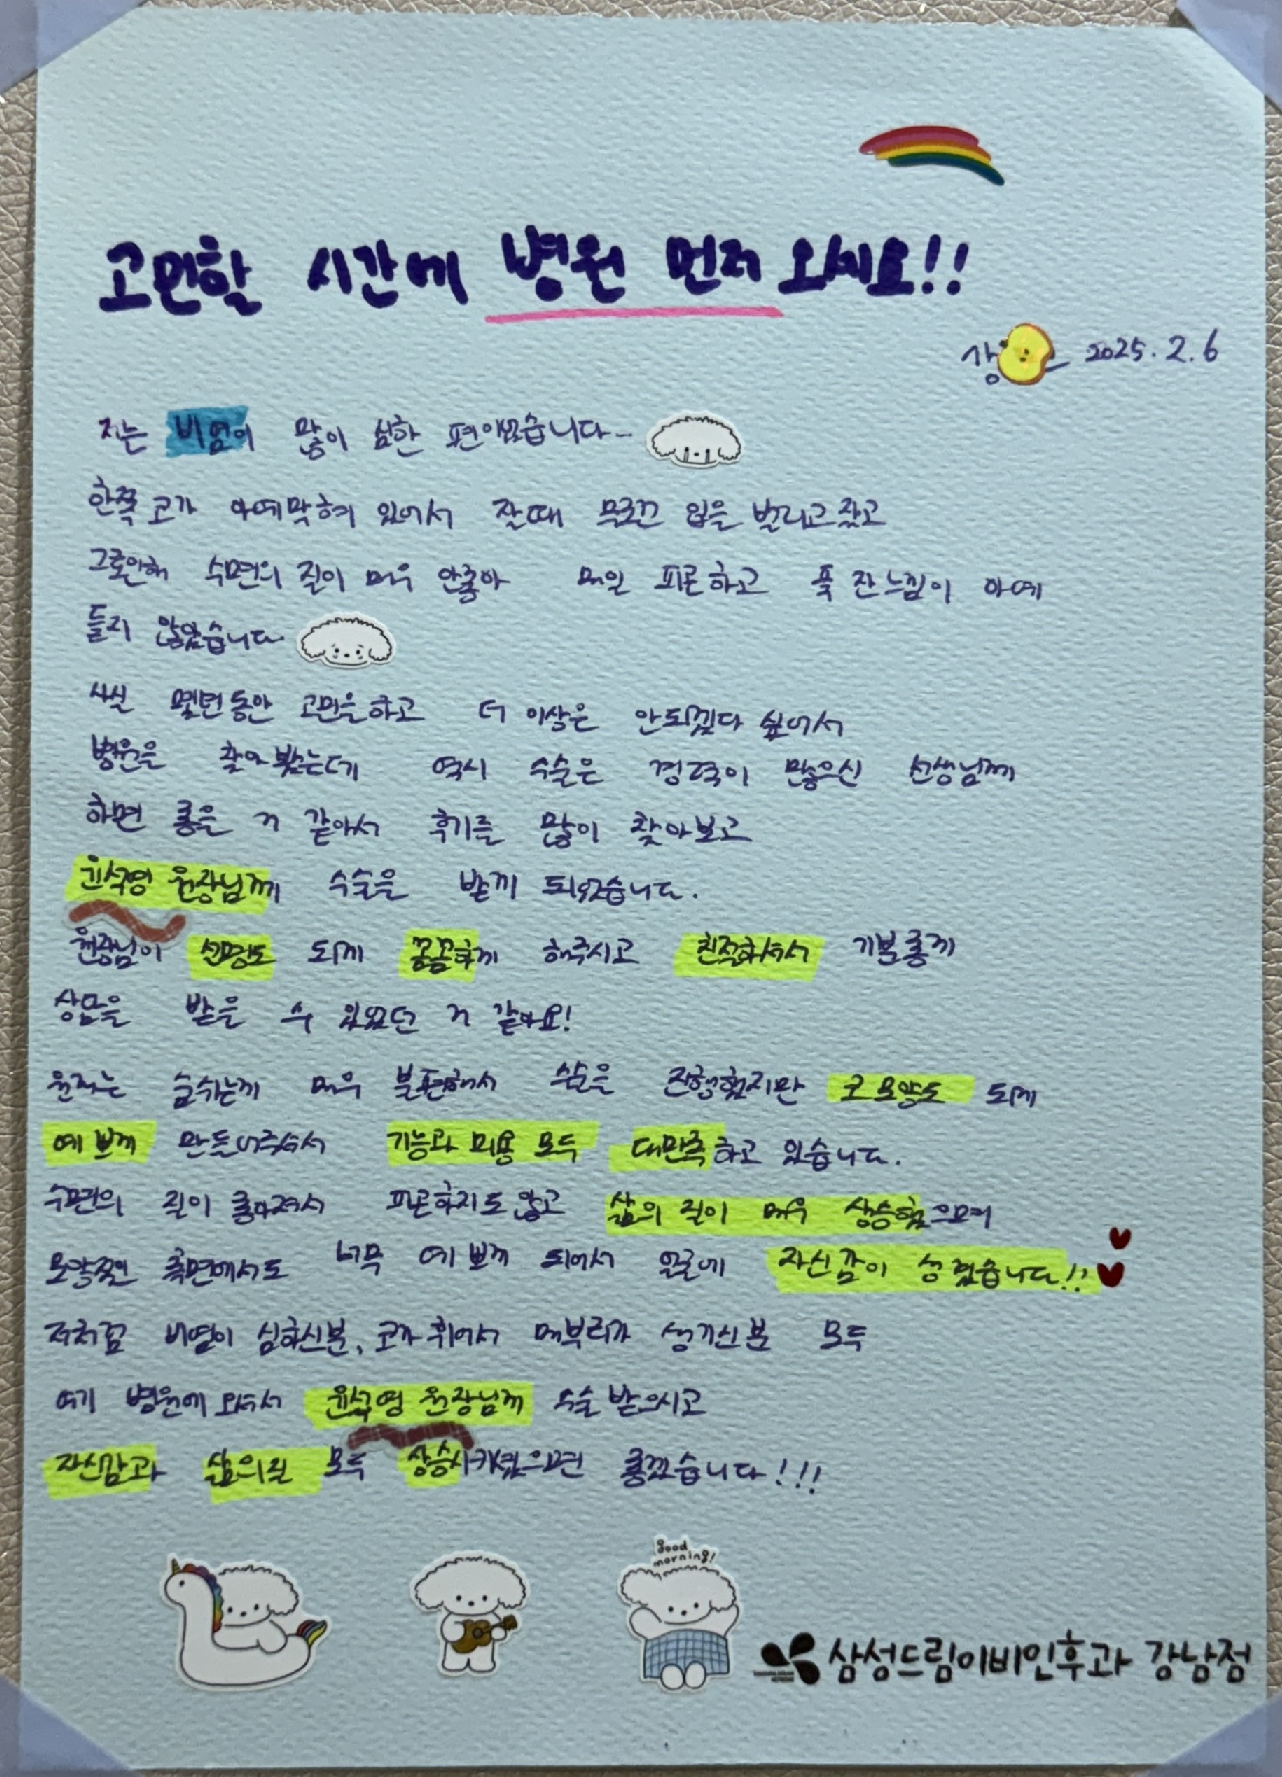 고민할 시간에 병원 먼저 오세요!!
강 2025.2.6
저는 비염이 많이 심한 편이였습니다..
한쪽 코가 아예막혀 있어서 잘때 무조건 입을 벌리고 잤고
그로인해 수면의 질이 매우 안좋아 매일 피곤하고 푹 잔느낌이 아예
들지 않았습니다
사실 몇년동안 고민을하고 더 이상은 안되겠다 싶어서
병원을 찾아봤는데 역시 수술은 경력이 많으신 선생님께
하면 좋을 거 같아서 후기를 많이 찾아보고
윤석영 원장님께 수술을 받게 되었습니다.
원장님이 설명도 되게 꼼꼼하게 해주시고 친절하셔서 기분좋게
상담을 받을 수 있었던 거 같아요!
숨쉬는게 매우 불편해서 수술을 진행했지만 코 모양도 되게
예쁘게 만들어주셔서 기능과 미용 모두 대만족하고 있습니다.
수면의 질이 좋아져서 피곤하지도 않고 삶의 질이 매우 상승했으며
모양쪽인 측면에서도 너무 예쁘게 되어서 얼굴에 자신감이 생겼습니다!!
저처럼 비염이 심하신분, 코가 휘어서 매부리가 생기신분 모두
여기 병원에 오셔서 윤석영 원장님께 수술 받으시고
자신감과 삶의질 모두 상승시키셨으면 좋겠습니다!!!
good
morning!
삼성드림이비인후과 강남점